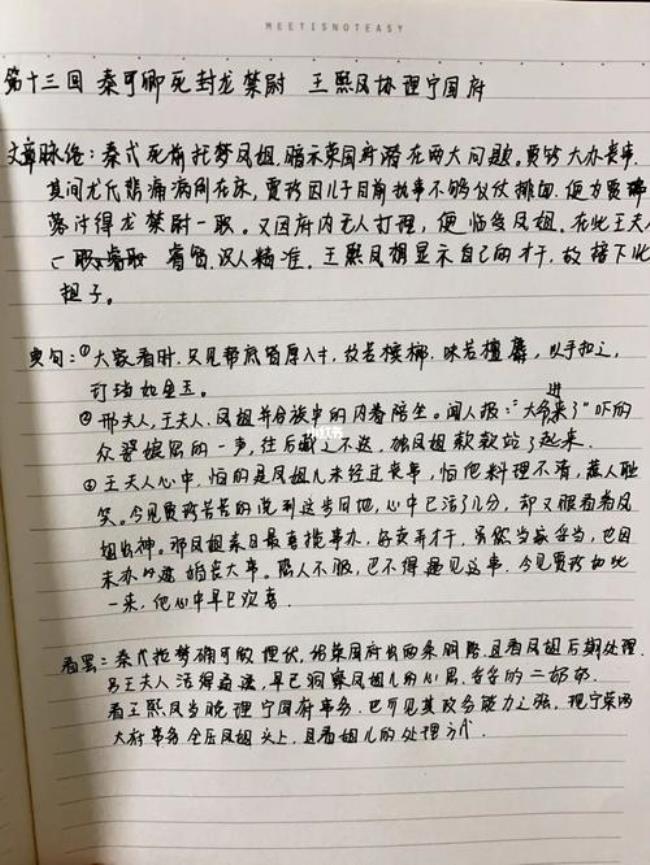 MEETISNOTEASY
第十三回 秦可卿死封龙禁尉 王熙凤协理宁国府
文章脉络：秦氏死前托梦凤姐，暗示荣国府潜在两大问题。贾珍大办丧事，
其间尤氏悲痛病倒在床，贾珍因儿子目前执事不够仪仗排面，便为贾
蓉讨得龙禁尉一职。又因府内无人打理，便临委凤姐。在此王夫人
睿智，识人精准。王熙凤想显示自己的才干，故接下此
担子。
奥句：①大家看时，只见帮底皆厚八寸，纹若槟榔，味若檀麝，以手扣之，
叮珰如金玉。
②邢夫人，王夫人，凤姐并合族中的内眷陪坐。闻人报：“大爷进来了”吓的
众婆娘唿的一声，往后藏之不迭，独凤姐款款站了起来。
③王夫人心中，怕的是凤姐儿未经过丧事，怕他料理不清，惹人耻
笑。今见贾珍苦苦的说到这步田地，心中已活了几分，却又眼看着凤
姐出神。那凤姐素日最喜揽事办，好卖弄才干，虽然当家妥当，也因
未办过婚丧大事。恐人不服，巴不得遇见这事。今见贾珍如此
一来，他心中早已欢喜。
看罢：秦氏托梦确可做埋伏，给荣国府出两条明路，且看凤姐后期处理。
另王夫人活得通透，早已洞察凤姐儿的心思，妥妥的二奶奶。
看王熙凤当晚理宁国府事务，已可见其政务能力之强，现宁荣两
大府事务全压凤姐头上，且看姐儿的处理方式。
小红书